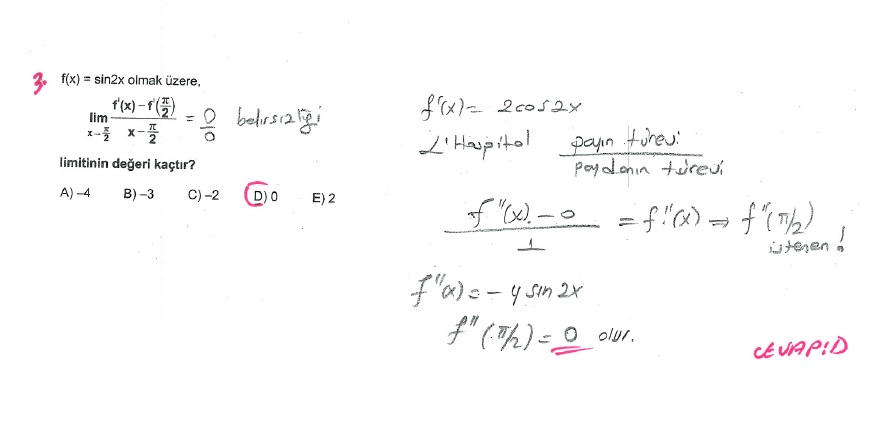 3. f(x) = sin2x olmak üzere,
lim x→π/2 f'(x) – f'(π/2) / x – π/2 = 0/0 belirsizliği
limitinin değeri kaçtır?
A) –4 B) –3 C) –2 D) 0 E) 2
f'(x) = 2cos2x
L'Hospital payın türevi / paydanın türevi
f''(x) – 0 / 1 = f''(x) ⇒ f''(π/2)
istenen!
f''(x) = – 4 sin 2x
f''(π/2) = 0 olur.
CEVAP: D